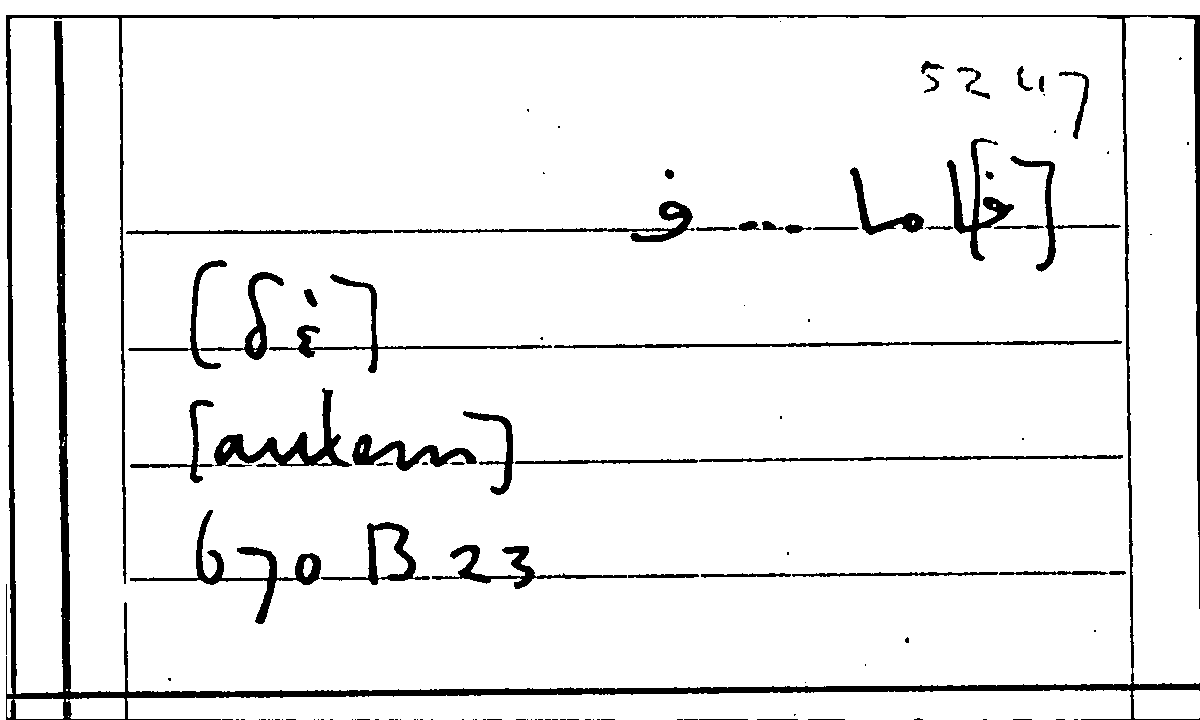 5247
[ف]اما ... ف
[δὲ]
[autem]
670 B 23